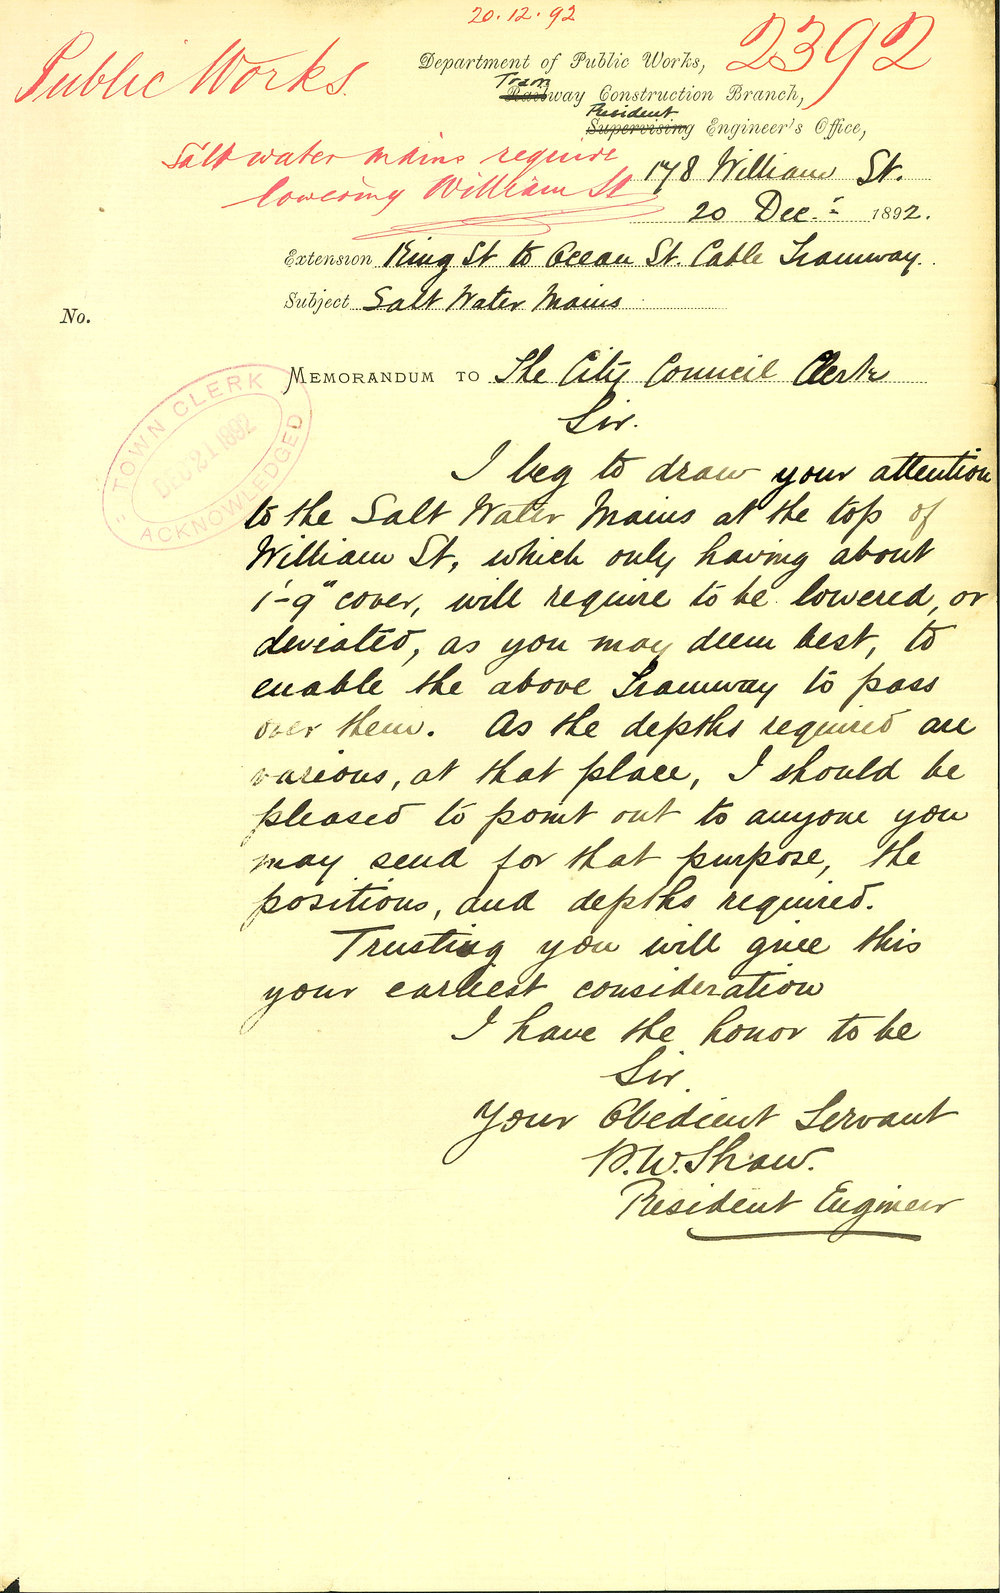 20.12.92
Public Works.
2392
Department of Public Works,
Tram
Railway Construction Branch,
Resident
Supervising Engineer's Office,
Salt water mains require
lowering William St
178 William St.
20 Dec.r 1892.
Extension King St to Ocean St. Cable Tramway.
Subject Salt Water Mains
No.
MEMORANDUM TO The City Council Clerk
TOWN CLERK
DEC 21 1892
ACKNOWLEDGED
Sir.
I beg to draw your attention
to the Salt Water Mains at the top of
William St, which only having about
1'-9" cover, will require to be lowered, or
deviated, as you may deem best, to
enable the above Tramway to pass
over them. As the depths required are
various, at that place, I should be
pleased to point out to anyone you
may send for that purpose, the
positions, and depths required.
Trusting you will give this
your earliest consideration
I have the honor to be
Sir
Your Obedient Servant
P.W. Shaw.
Resident Engineer